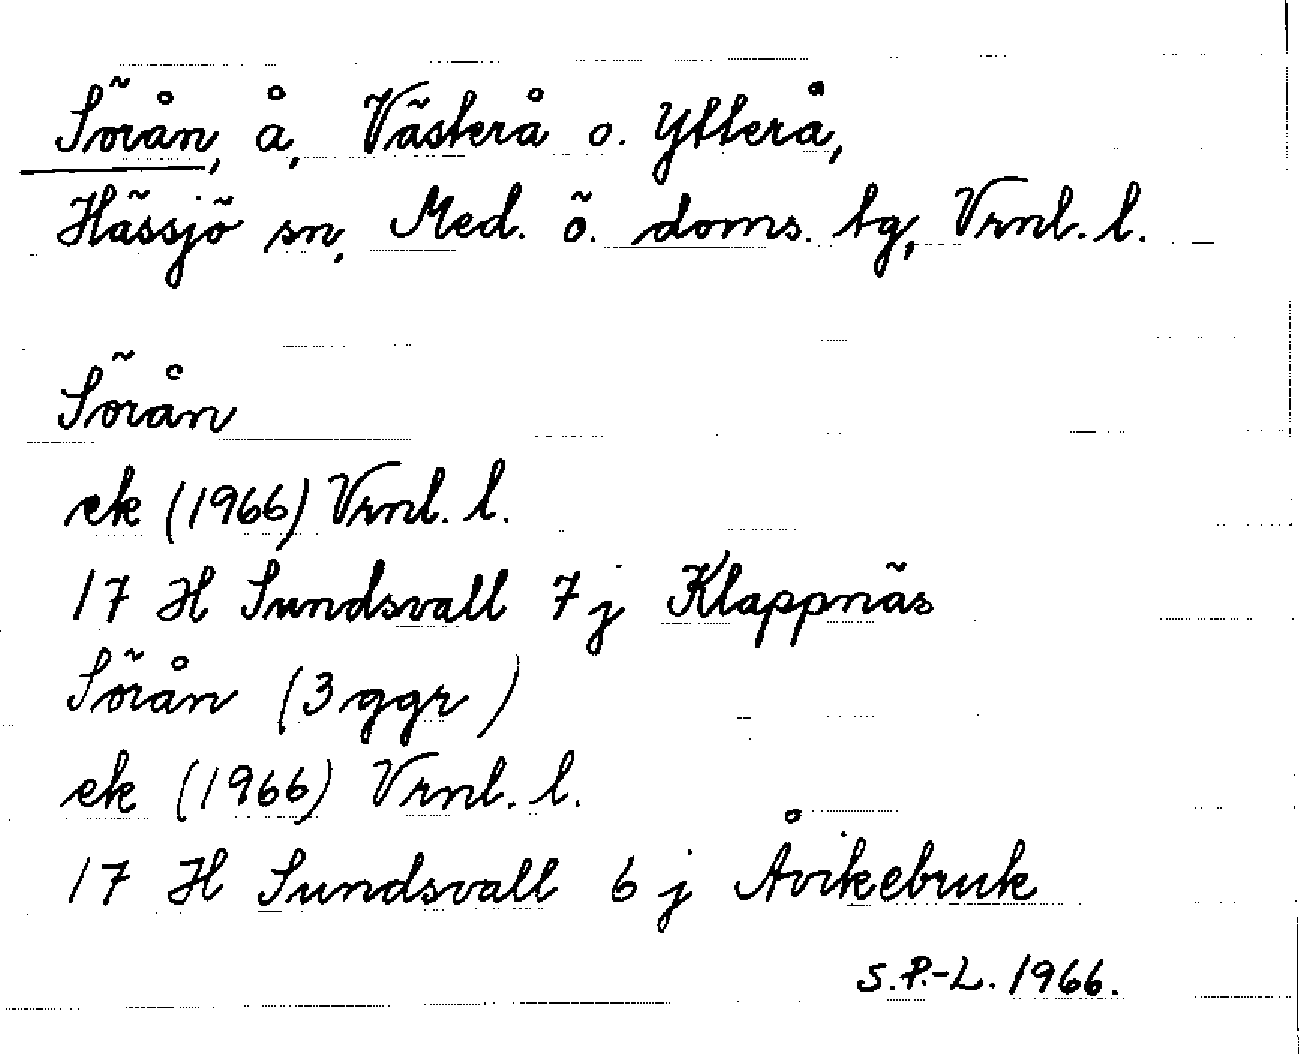 Sörån, å, Västerå o. Ytterå,
Hässjö sn, Med. ö. doms. tg, Vrnl. l.
Sörån
ek (1966) Vrnl. l.
17 H Sundsvall 7 j Klappnäs
Sörån (3 ggr)
ek (1966) Vrnl. l.
17 H Sundsvall 6 j Åvikebruk
S.P.-L. 1966.